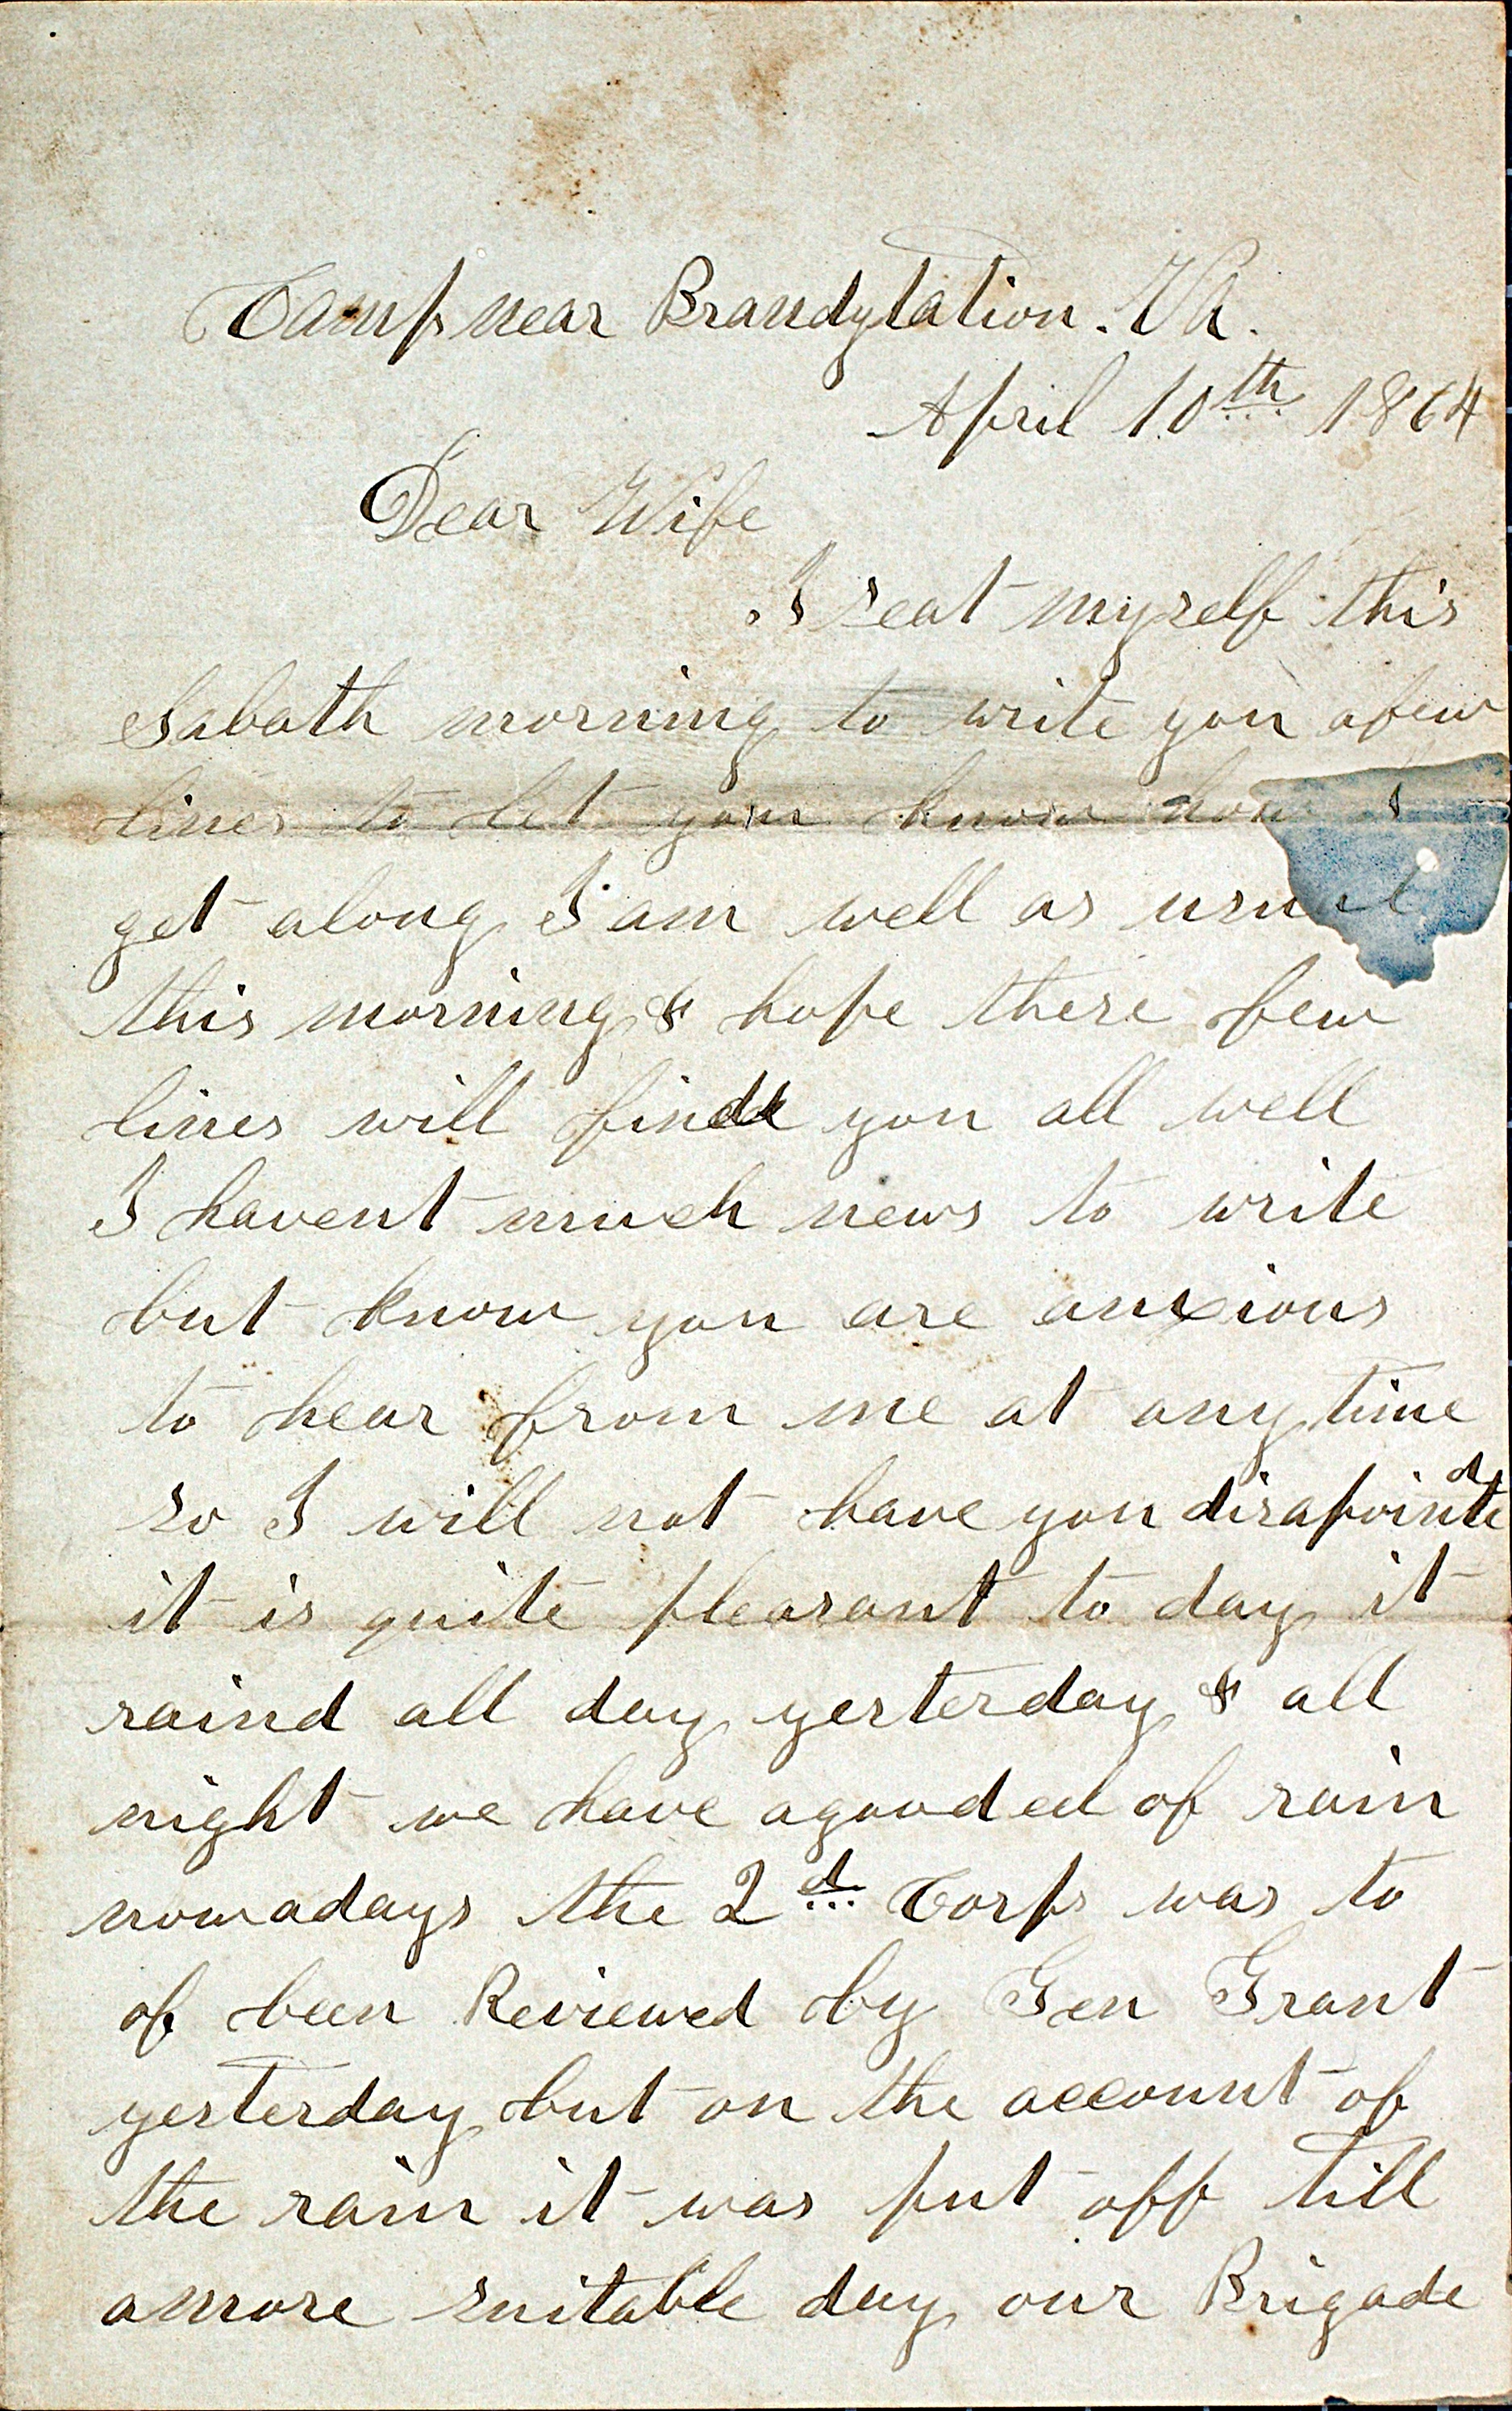 Camp near Brandytation. Va.
April 10th 1864
Dear Wife
I seat myself this
Sabath morning to write you afew
lines to let you know how I
get along I am well as usual
this morning & hope these few
lines will find you all well
I havent much news to write
but know you are anxious
to hear from me at any time
so I will not have you disapointed
it is quite pleasant to day it
raind all day yesterday & all
night we have agooddeel of rain
nowadays the 2d Corps was to
of been Reviewed by Gen Grant
yesterday but on the account of
the rain it was put off till
amore suitable day our Brigade